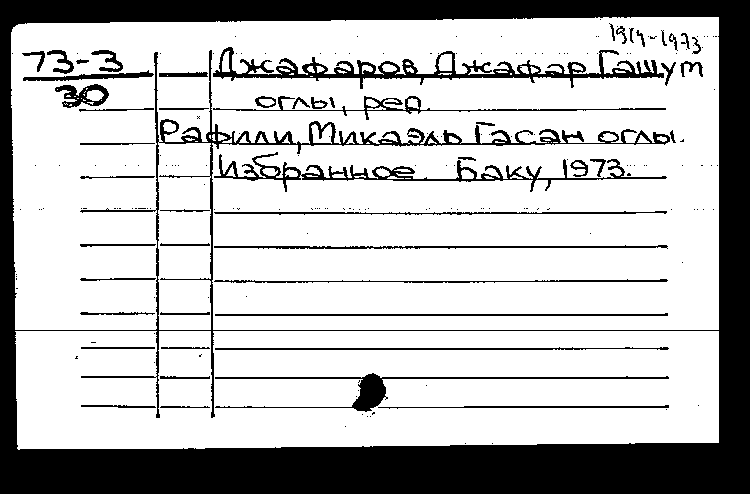 1914-1973
73-3 Джафаров, Джафар Гашум
30
оглы, ред.
Рафили, Микаэль Гасан оглы.
Избранное. Баку, 1973.